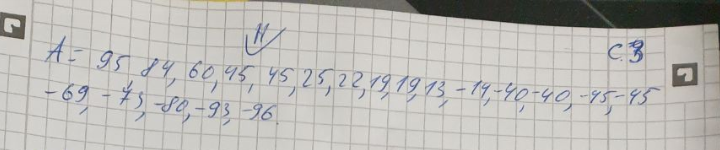 И
С.3
A = 95, 84, 60, 45, 45, 25, 22, 19, 19, 13, -14, -40, -40, -45, -45
-69, -73, -80, -93, -96.